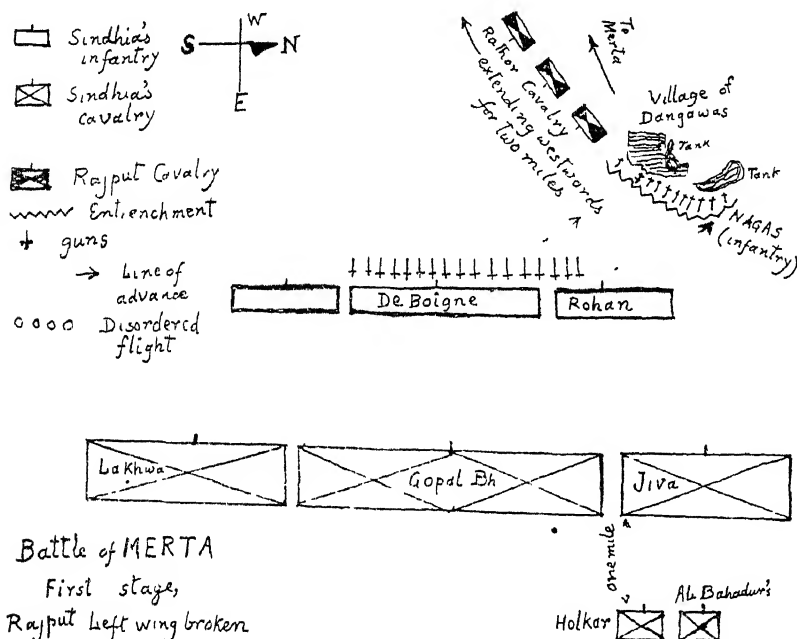 Sindhia's
infantry
Sindhia's
cavalry
Rajput Cavalry
Entrenchment
guns
Line of
advance
Disordered
flight
W
S
N
E
Rathor Cavalry
extending westwords
for two miles
To
Merta
Village of
Dangawas
Tank
Tank
NAGAS
(infantry)
De Boigne
Rohan
Lakhwa
Gopal Bh
Jiva
one mile
Holkar
Ali Bahadur's
Battle of MERTA
First stage,
Rajput Left wing broken